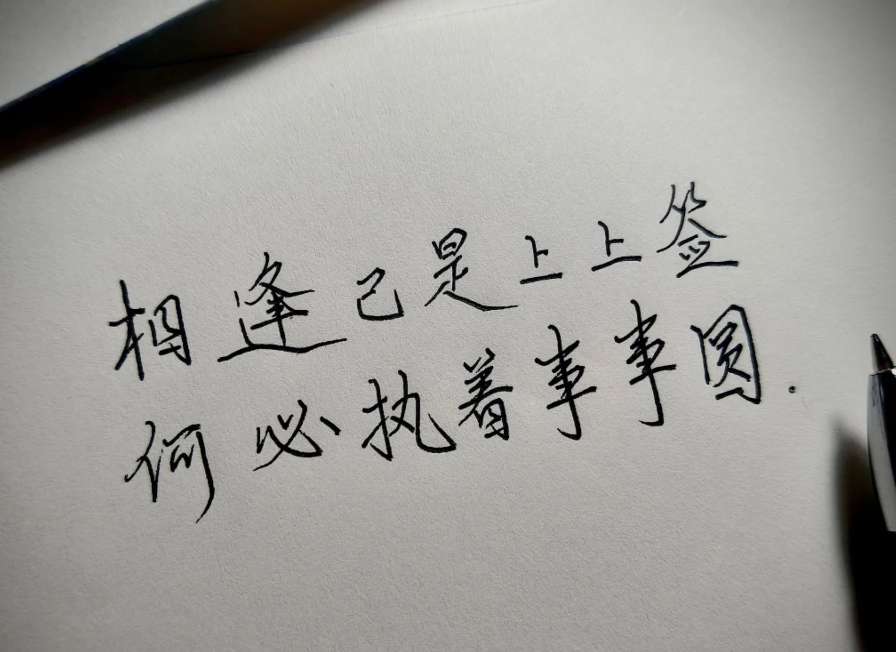 相逢已是上上签
何必执着事事圆.